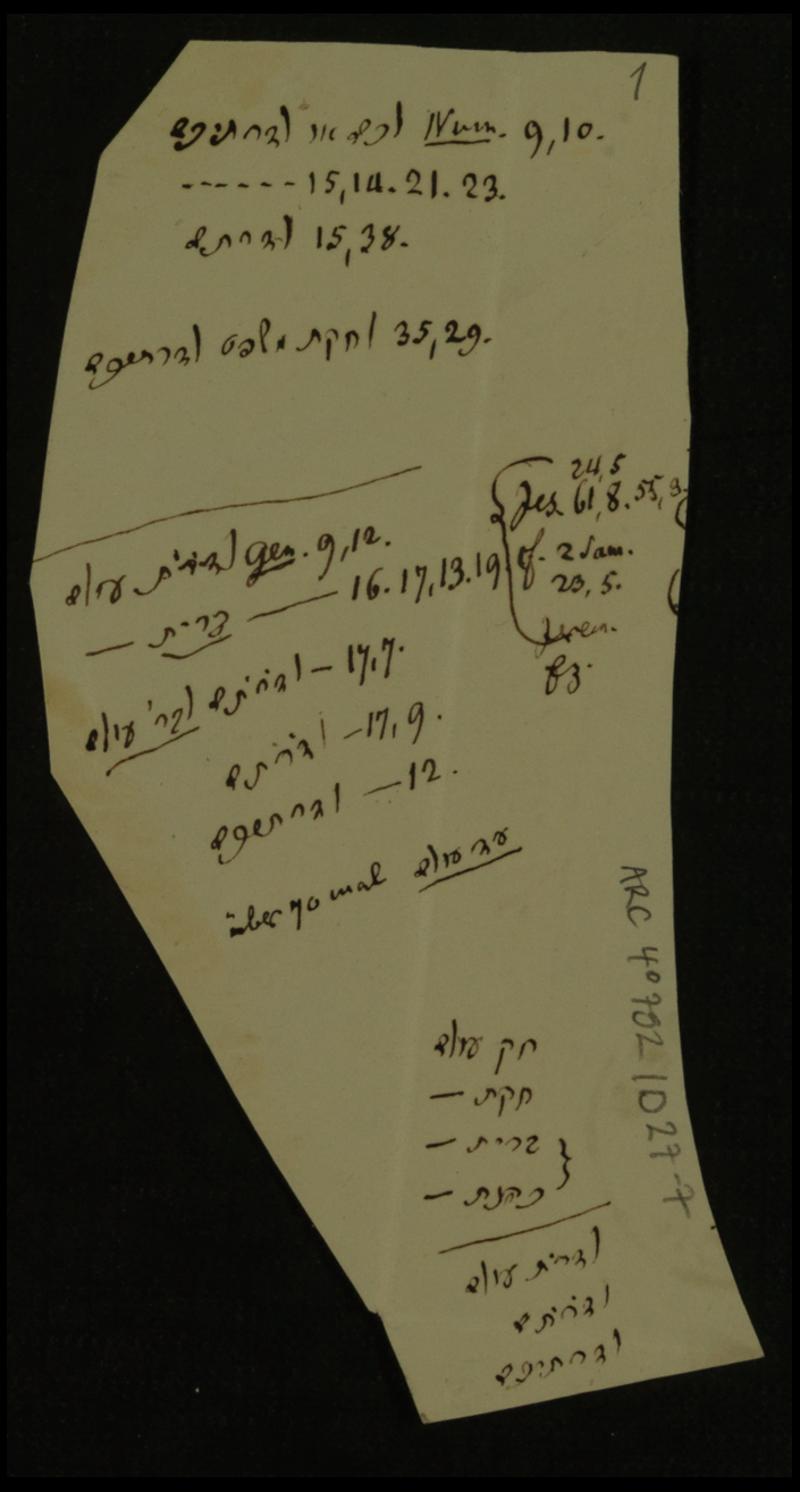 1
לכם או לדרתיכם Num. 9,10.
------15,14.21.23.
לדרתם 15,38.
לחקת משפט לדרתיכם 35,29.
לדרת עולם Gen. 9,12.
— ברית — 16. 17,13.19
24,5
Jes. 61,8. 55,3.
cf. 2 Sam.
23,5.
Jerem.
Ez.
לדרתם לבר' עולם — 17,7.
לדרתם — 17,9.
לדרתיכם — 12.
über 70 mal עד עולם
חק עולם
חקת —
ברית —
כהנת —
לדרת עולם
לדרתם
לדרתיכם
ARC 4° 792 / D27-7